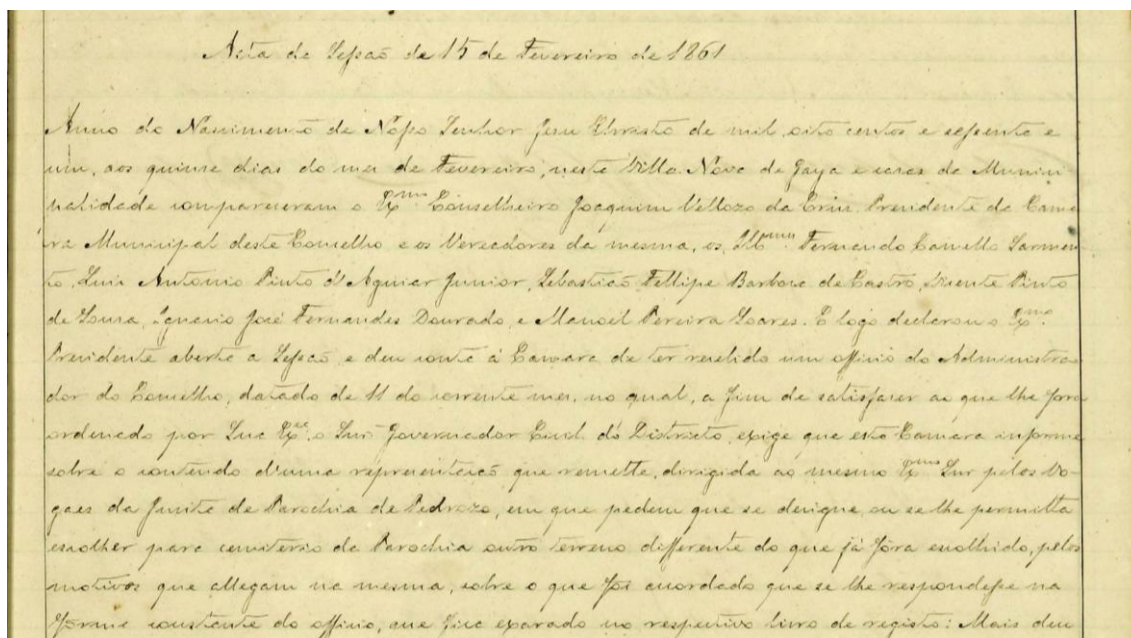 Acta da Sessaõ de 15 de Fevereiro de 1861
Anno do Nascimento de Nosso Senhor Jesu Christo de mil oito centos e sessenta e
um, aos quinse dias do mes de Fevereiro, nesta Villa Nova de Gaya e casas da Munici
palidade compareceram o Exmo Conselheiro Joaquim Vellozo da Crus, Presidente da Cama
ra Municipal deste Concelho e os Vereadores da mesma, os, Illmos Fernando Camello Sarmen
to, Luis Antonio Pinto d'Aguiar Junior, Sebastiaõ Fellipe Barbosa de Castro, Vicente Pinto
de Sousa, Ignacio José Fernandes Dourado, e Manoel Pereira Soares. E logo declarou o Exmo
Presidente aberta a Sessaõ, e deu conta á Camara de ter recebido um officio do Administra
dor do Concelho, datado de 11 do corrente mes, no qual, a fim de satisfaser ao que lhe fora
ordenado por Sua Exca o Snr Governador Civil do Districto, exige que esta Camara informe
sobre o contendo d'uma representaçaõ que remette, dirigida ao mesmo Exmo Snr pelos Vo-
gaes da Junta de Parochia de Pedrozo, em que pedem que se designe, ou se lhe permitta
escolher para cemiterio da Parochia outro terreno differente do que já fôra escolhido, pelos
motivos que allegam na mesma, sobre o que foi accordado que se lhe respondesse na
forma constante do officio, que fica exarado no respectivo livro de registo: Mais deu